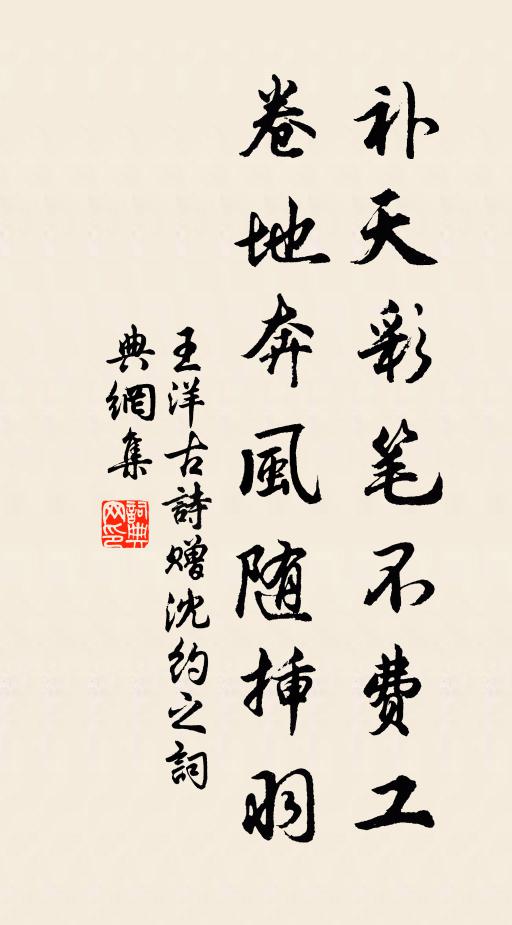 补天彩笔不费工
卷地奔風随揷羽
王洋古詩赠沈约之詞
典網集
詞典网印